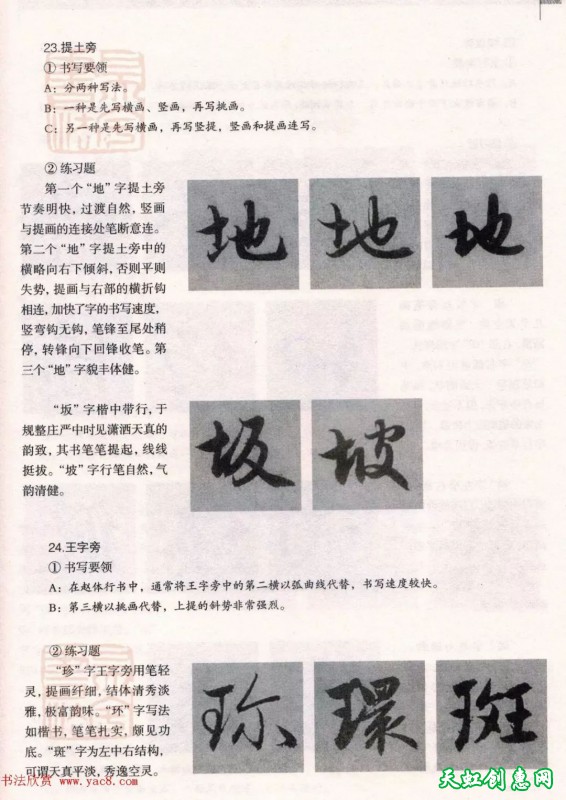 23.提土旁
① 书写要领
A：分两种写法。
B：一种是先写横画、竖画，再写挑画。
C：另一种是先写横画，再写竖提，竖画和提画连写。
② 练习题
第一个“地”字提土旁
节奏明快，过渡自然，竖画
与提画的连接处笔断意连。
第二个“地”字提土旁中的
横略向右下倾斜，否则平则
失势，提画与右部的横折钩
相连，加快了字的书写速度，
竖弯钩无钩，笔锋至尾处稍
停，转锋向下回锋收笔。第
三个“地”字貌丰体健。
地 地 地
“坂”字楷中带行，于
规整庄严中时见潇洒天真的
韵致，其书笔笔提起，线线
挺拔。“坡”字行笔自然，气
韵清健。
坂 坡
24.王字旁
① 书写要领
A：在赵体行书中，通常将王字旁中的第二横以弧曲线代替，书写速度较快。
B：第三横以挑画代替，上提的斜势非常强烈。
② 练习题
“珍”字王字旁用笔轻
灵，提画纤细，结体清秀淡
雅，极富韵味。“环”字写法
如楷书，笔笔扎实，颇见功
底。“斑”字为左中右结构，
可谓天真平淡，秀逸空灵。
珎 環 斑
书法欣赏 www.yac8.com
天虹创意网